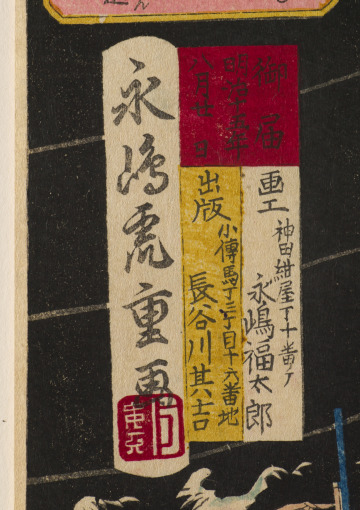 御届
明治十五年
八月廿 日
画工
神田紺屋丁十番丁
永嶋福太郎
出版
小傳馬丁三丁目十六番地
長谷川其吉
永嶋虎重画